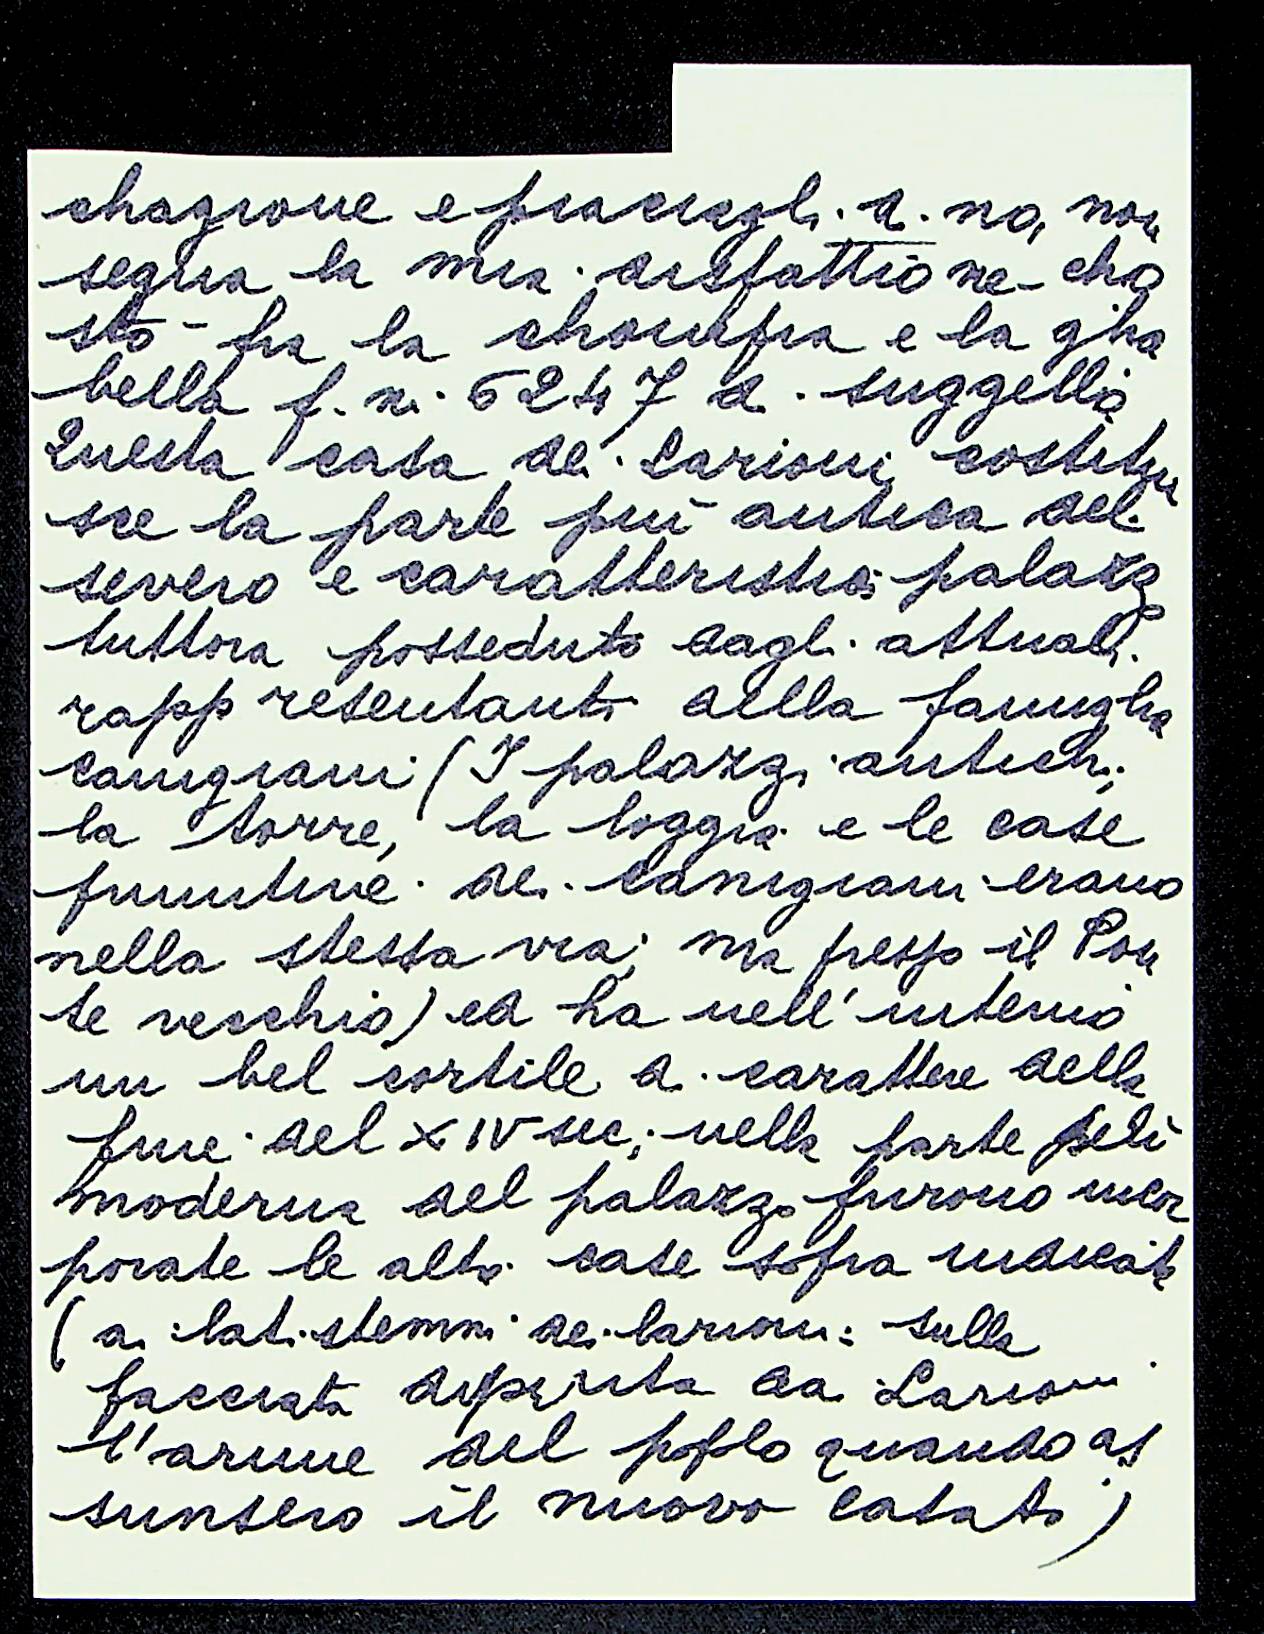 chagione e piacciagli di no, non
segua la mia disfattione - cho
sto - fra la chompra e la gha
bella f. n. 6247 di suggello
Questa casa dei Larioni costitui
sce la parte più antica del
severo e caratteristico palazzo
tuttora posseduto dagli attuali
rappresentanti della famiglia
Canigiani (I palazzi antichi,
la torre, la loggia e le case
primitive dei Canigiani erano
nella stessa via, ma presso il Pon
te vecchio) ed ha nell'interno
un bel cortile di carattere della
fine del XIV sec; nella parte più
moderna del palazzo furono incor
porate le altre case sopra indicate
(ai lati stemmi dei Larioni: sulla
facciata dipinta da Larioni
l'arme del poplo quando as
sunsero il nuovo casato)